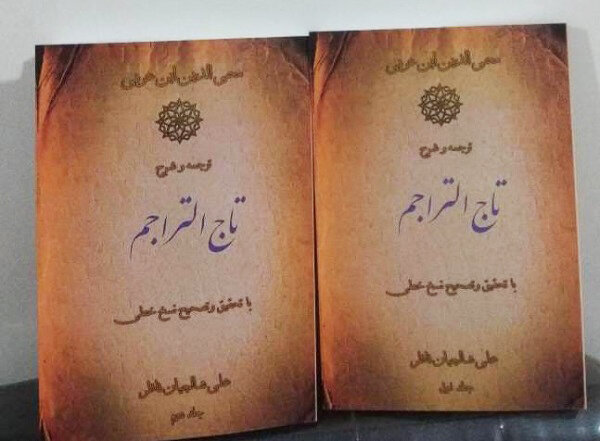 محی الدین ابن عربی
ترجمه و شرح
تاج التراجم
با تحقیق و تصحیح نسخ خطی
علی صالحیان فاضل
جلد اول
محی الدین ابن عربی
ترجمه و شرح
تاج التراجم
با تحقیق و تصحیح نسخ خطی
علی صالحیان فاضل
جلد دوم